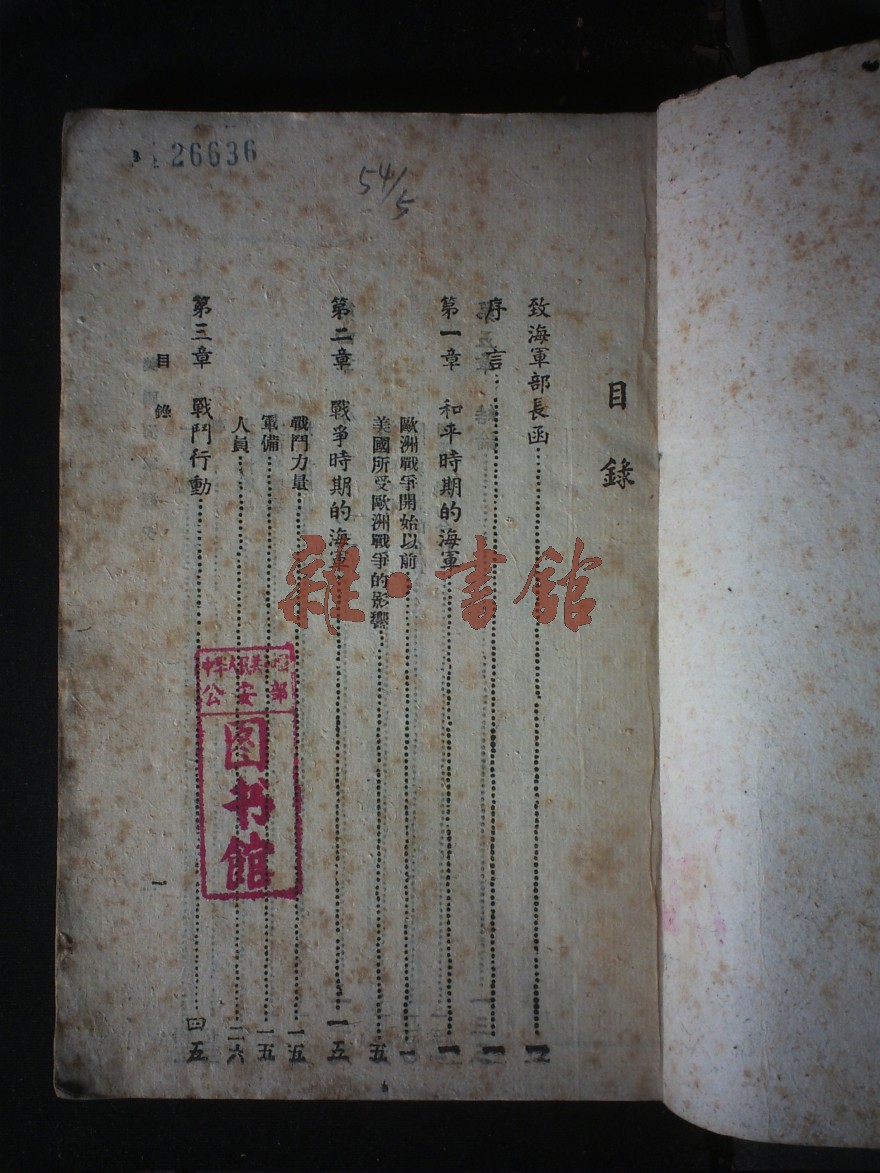 26636
54/5
目錄
致海軍部長函
序言
第一章 和平時期的海軍 一
歐洲戰爭開始以前 一
美國所受歐洲戰爭的影響 五
第二章 戰爭時期的海軍 一五
戰鬥力量 一五
軍備 一五
人員 二六
第三章 戰鬥行動 四五
目錄
一
雜·書館
中华人民共和国
公安部
图书馆